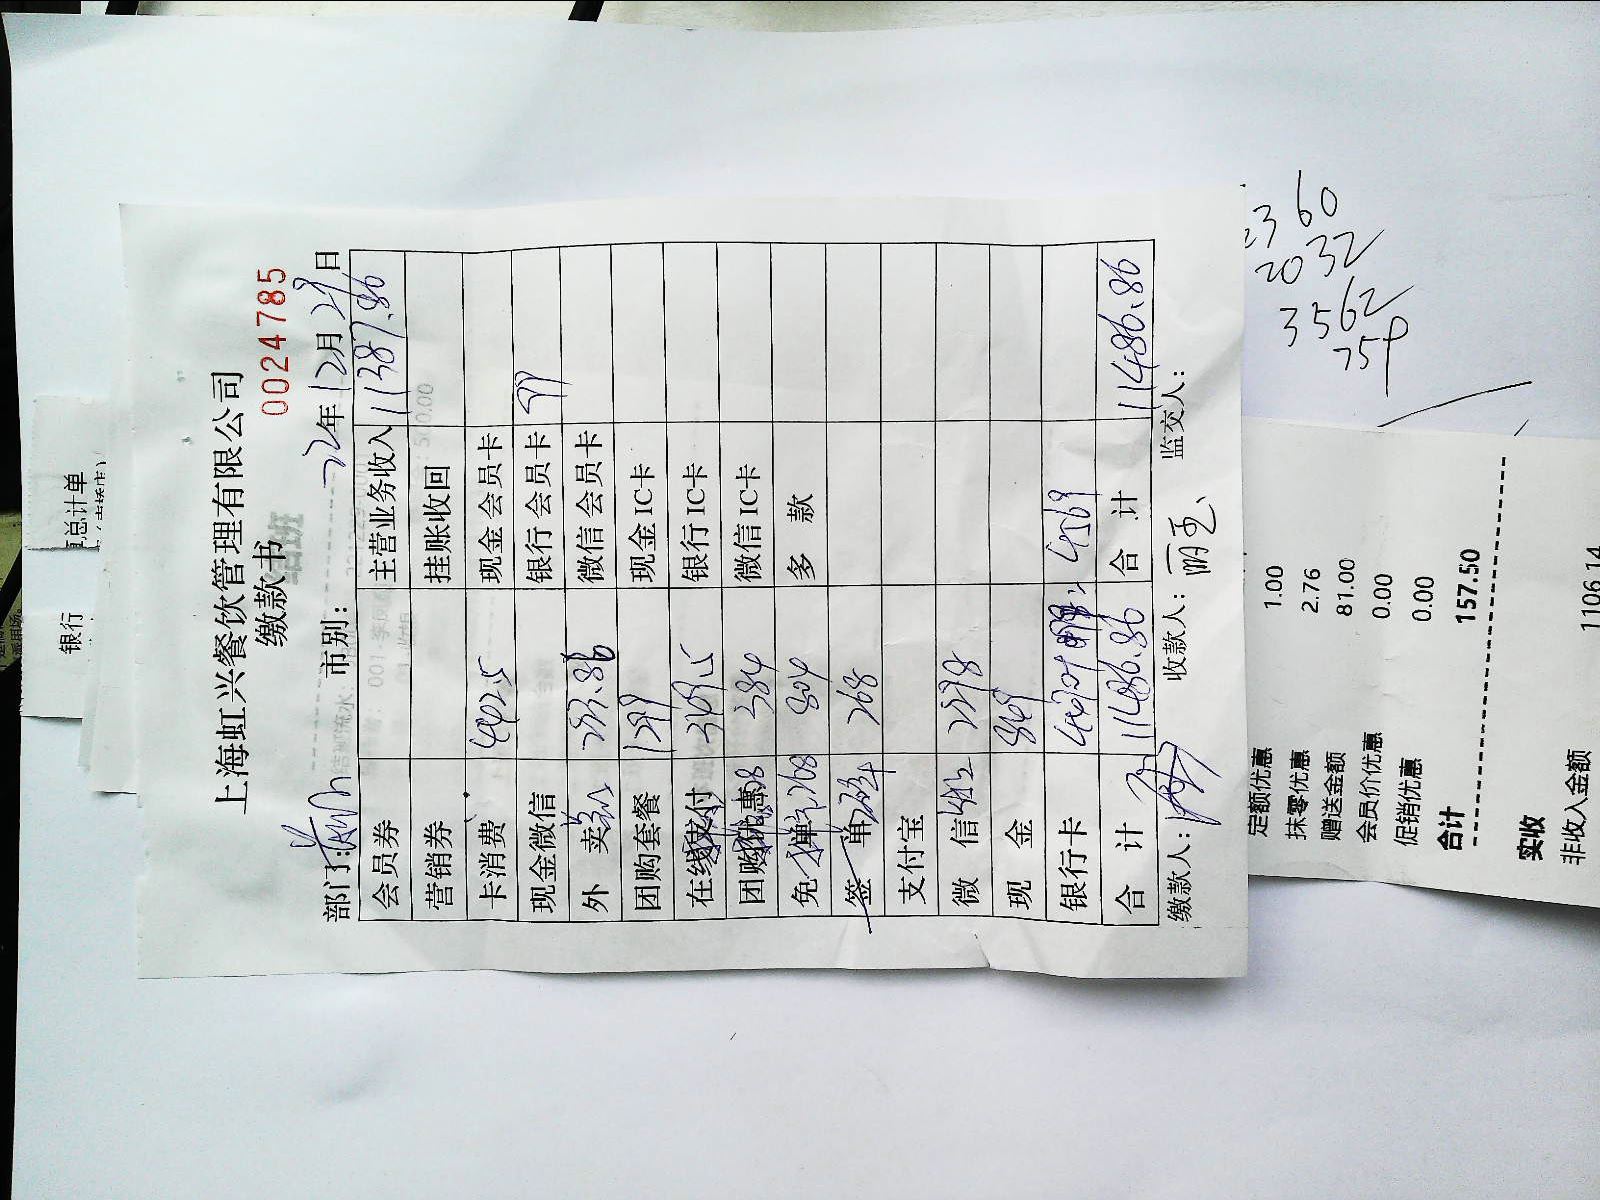 上海虹兴餐饮管理有限公司
缴款书
0024785
部门: 市别: 22年12月29日
会员券 主营业务收入 11387.86
营销券 挂账收回
卡消费 442.5 现金会员卡
现金微信 银行会员卡 99
外卖 微信会员卡
团购套餐 1299 现金IC卡
在线支付 369.5 银行IC卡
团购优惠 384 微信IC卡
免单 804 多款
签单 268
支付宝
微信 2298
现金 869
银行卡 4569
合计 11486.86 合计 11486.86
缴款人: 收款人: 监交人:
2360
2032
3562
759
银行
总计单
定额优惠 1.00
抹零优惠 2.76
赠送金额 81.00
会员价优惠 0.00
促销优惠 0.00
合计 157.50
实收
非收入金额 1106.14